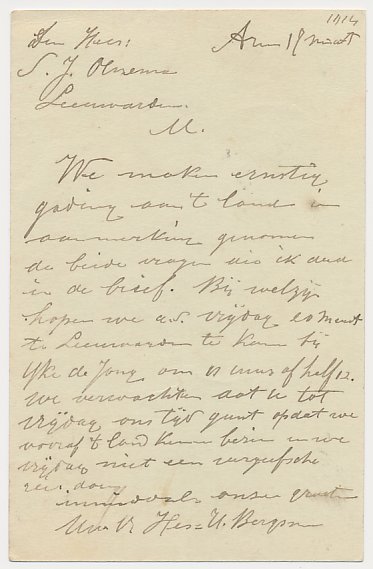 1914
Den Heer: Arum 18 Maart
S. J. Olnema
Leeuwarden.
M.
We maken ernstig
gading aan 't land in
aanmerking genomen
de beide vragen die ik deed
in de brief. Bij welzijn
hopen we a.s. vrijdag 20 Maart
te Leeuwarden te komen bij
IJke de Jong om 11 uur of half 12.
we verwachten dat u tot
vrijdag ons tijd gunt opdat we
vooraf 't land kunnen bezien en we
vrijdag niet een vergeefsche
reis doen
inmiddels onze groeten
Uw